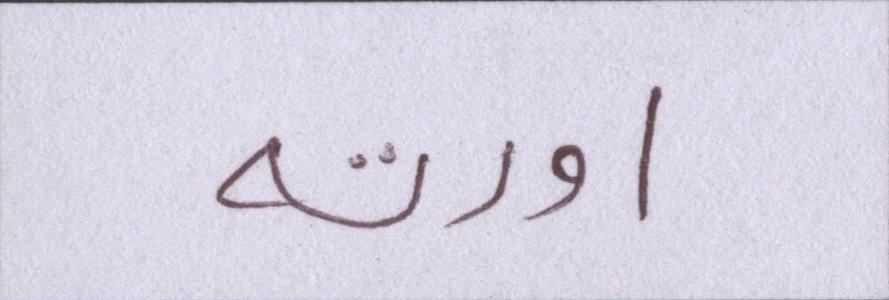 اورته